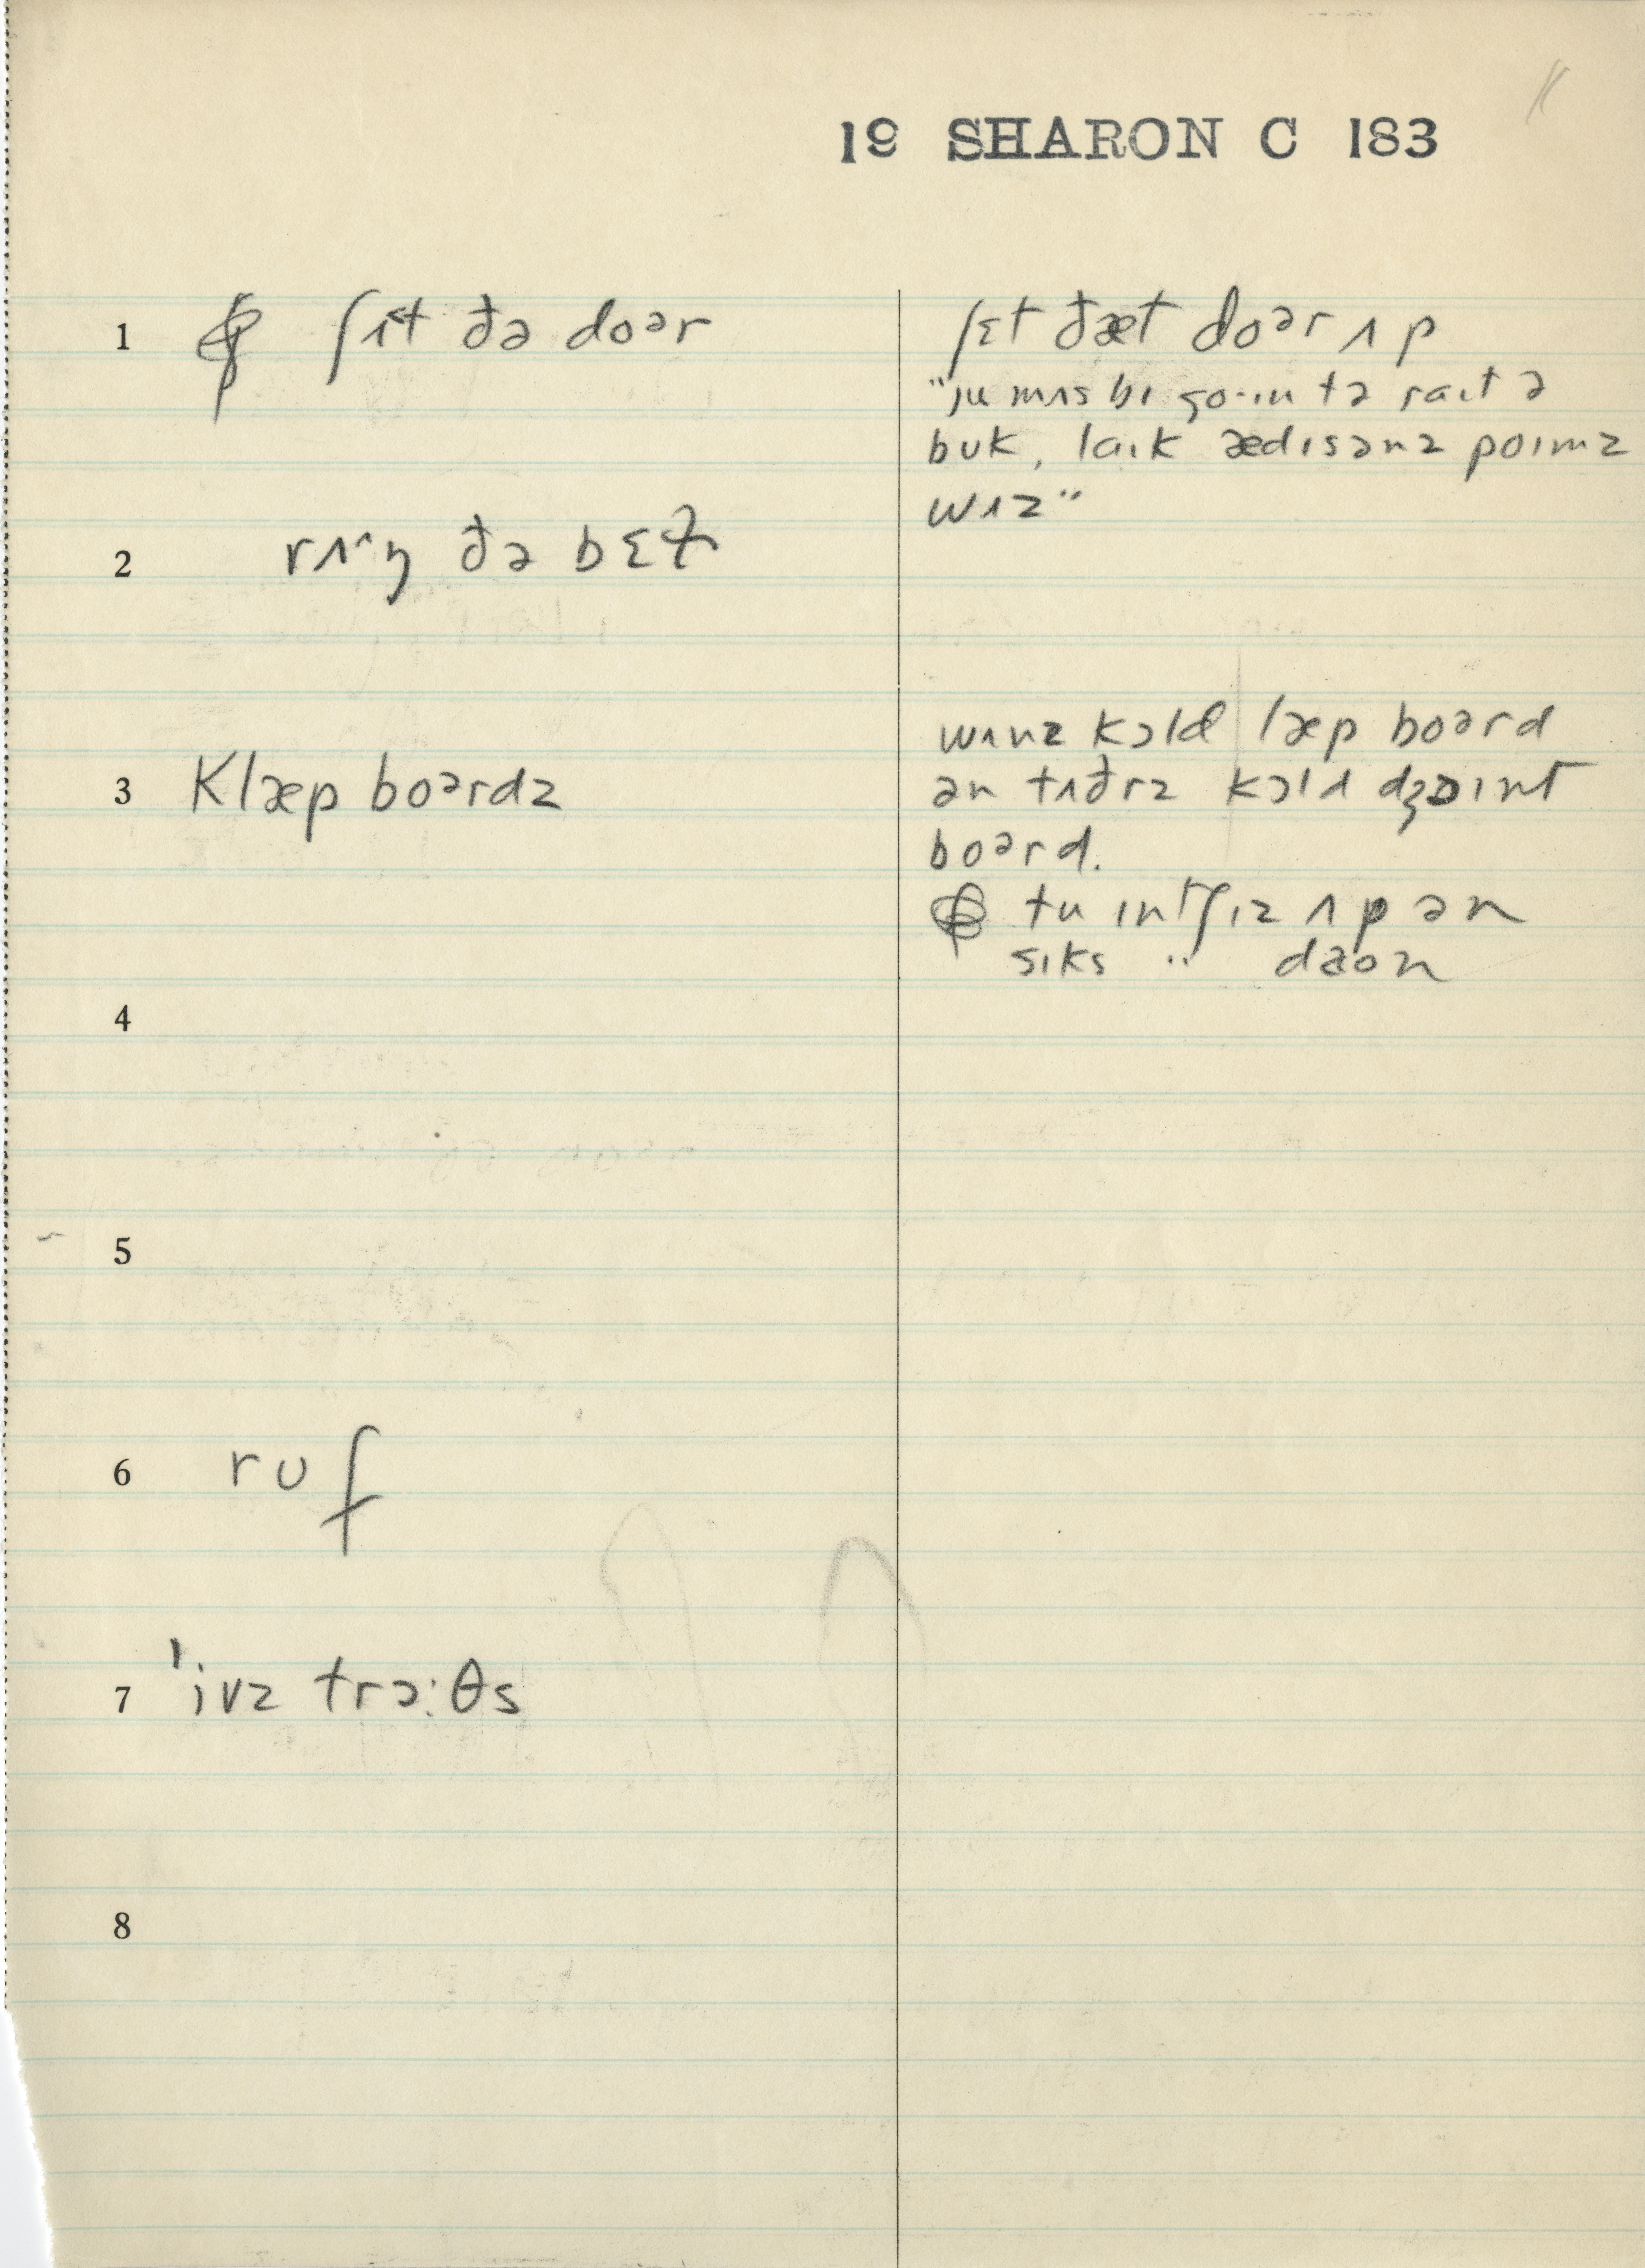 19 SHARON C 183
1 ʃɪt ðə doər
ʃɛt ðæt doər ʌp
"ju mʌs bɪ go·ɪn tə raɪt ə
bʊk, laɪk ædɪsənz poɪmz
wʌz"
2 rɪ^ŋ ðə bɛɫ
3 klæp boərdz
wʌnz kɔld læp boərd
ən tʌðrz kɔld dʒɔɪnt
boərd.
tu ɪntʃɪz ʌp ən
sɪks " daʊn
4
5
6 rʊf
7 'ivz trɔ:θs
8